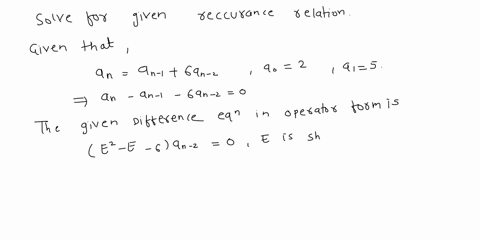 Solve for given reccurance relation.
Given that,
aₙ = aₙ₋₁ + 6aₙ₋₂ , a₀ = 2 , a₁ = 5.
⇒ aₙ - aₙ₋₁ - 6aₙ₋₂ = 0
The given Difference eqⁿ in operator form is
(E² - E - 6) aₙ₋₂ = 0 , E is sh